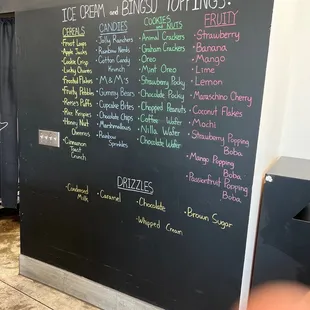 ICE CREAM and BINGSU TOPPINGS:
CEREALS
• Froot Loops
• Apple Jacks
• Cookie Crisp
• Lucky Charms
• Frosted Flakes
• Fruity Pebbles
• Reese's Puffs
• Rice Krispies
• Honey Nut
Cheerios
• Cinnamon
Toast
Crunch
CANDIES
• Jolly Ranchers
• Rainbow Nerds
• Cotton Candy
Krunch
• M&M's
• Gummy Bears
• Cupcake Bites
• Chocolate Chips
• Marshmallows
• Rainbow
Sprinkles
COOKIES and NUTS
• Animal Crackers
• Graham Crackers
• Oreo
• Mint Oreo
• Strawberry Pocky
• Chocolate Pocky
• Chopped Peanuts
• Coffee Wafer
• Vanilla Wafer
• Chocolate Wafer
FRUITY
• Strawberry
• Banana
• Mango
• Lime
• Lemon
• Maraschino Cherry
• Coconut Flakes
• Mochi
• Strawberry Popping
Boba
• Mango Popping
Boba
• Passionfruit Popping
Boba
DRIZZLES
• Condensed
Milk
• Caramel
• Chocolate
• Whipped Cream
• Brown Sugar